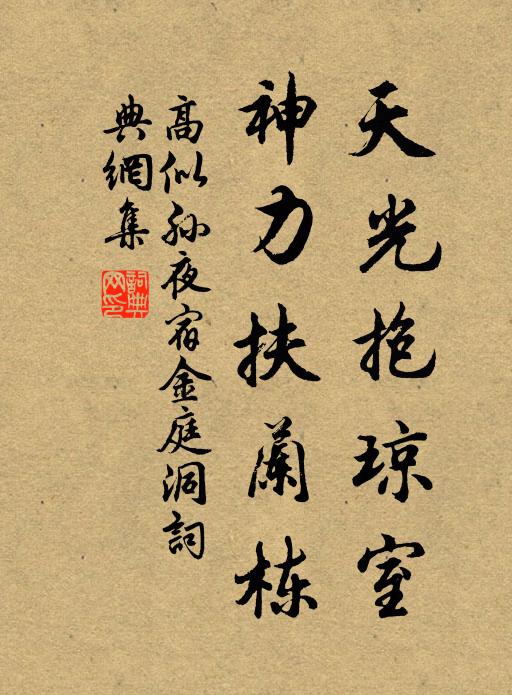 天光抱琼室
神力扶蘭栋
高似孙夜宿金庭洞詞
典網集
詞典网印